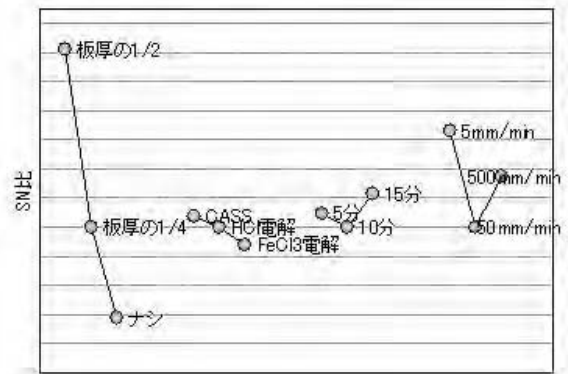 SN比
板厚の1/2
板厚の1/4
ナシ
CASS
HCl電解
FeCl3電解
5分
10分
15分
5mm/min
50mm/min
500mm/min